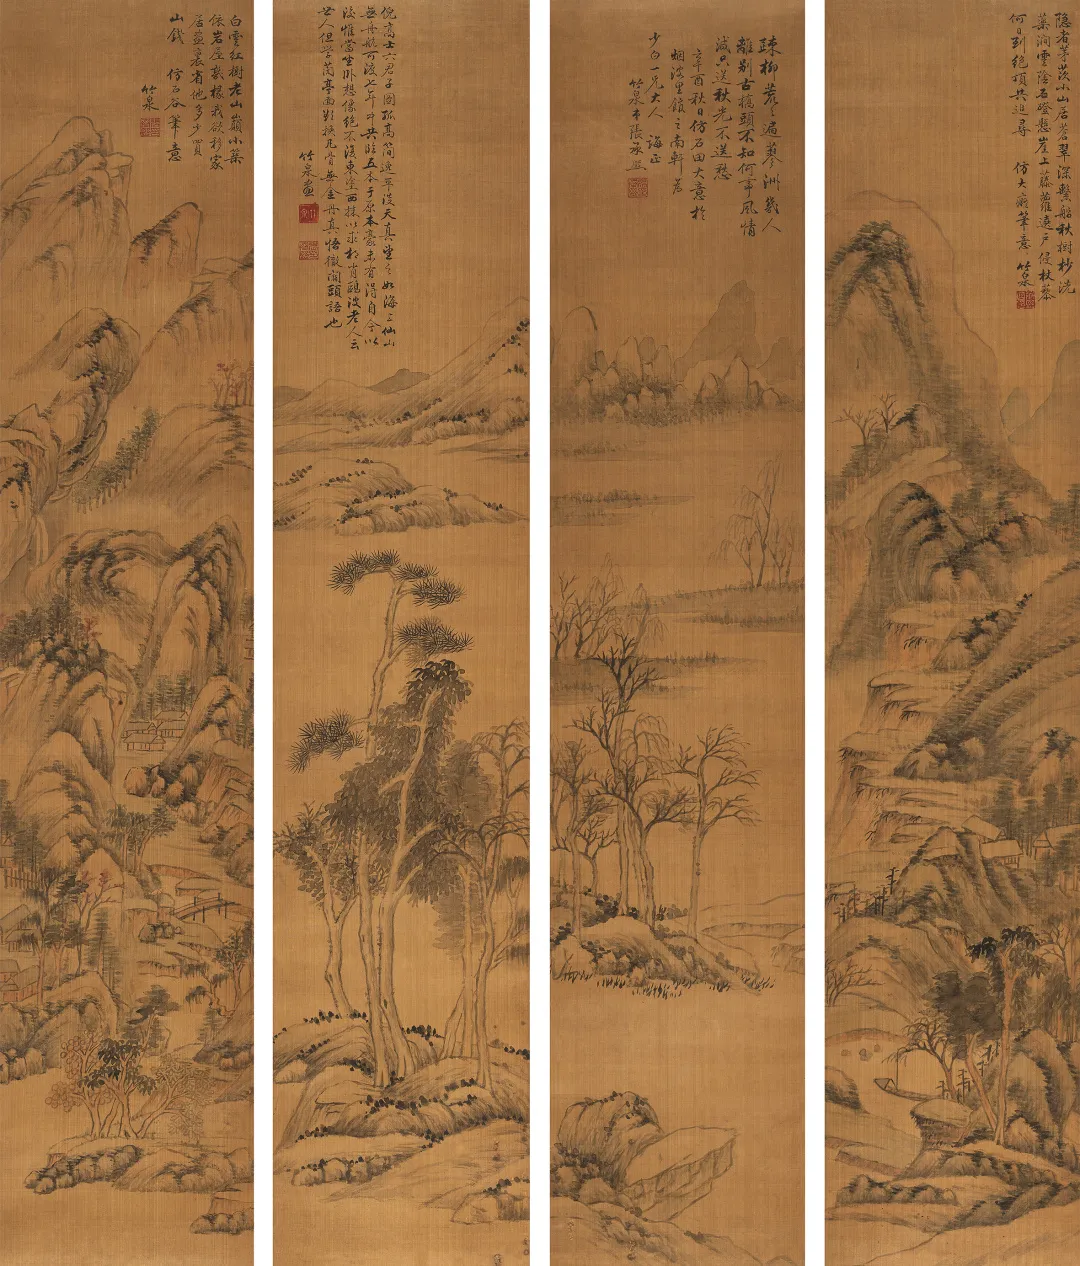 隱者茅茨小山居蒼翠深繫船秋樹杪洗
藥澗雲陰石磴懸崖上藤蘿遶戶侵杖藜
何日到絕頂共追尋 仿大癡筆意 竹泉
疎柳荒々遍蓼洲幾人
離別古橋頭不知何事風情
減只送秋光不送愁
辛酉秋日仿石田大意於
烟波里鎖之南軒為
少白一兄大人 誨正
竹泉弟張
倪高士六君子圖孤高簡逸平淡天真望之如海上仙山
無舟航可渡七年中共臨五本于原本豪未有得自今以
後惟當坐卧想像絕不復東塗西抹以求相肖鷗波老人云
世人但學蘭亭面欲換凡骨無金丹真悟徹開頭語也
竹泉畫
白雲紅樹老山巔小築
依岩屋數椽我欲移家
居畫裏省他多少買
山錢 仿石谷筆意
竹泉